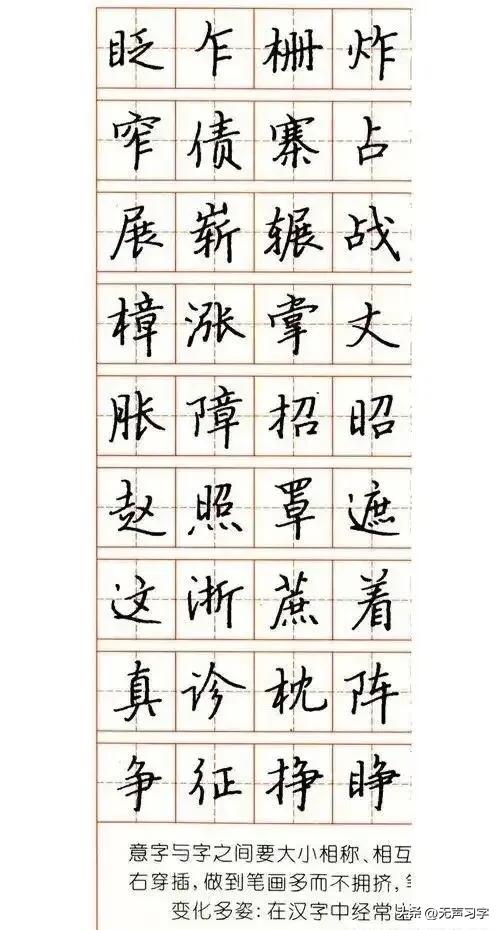 眨 乍 栅 炸
窄 债 寨 占
展 崭 辗 战
樟 涨 掌 丈
胀 障 招 昭
赵 照 罩 遮
这 浙 蔗 着
真 诊 枕 阵
争 征 挣 睁
意字与字之间要大小相称、相互
右穿插，做到笔画多而不拥挤，
变化多姿：在汉字中经常
头条 @无声习字